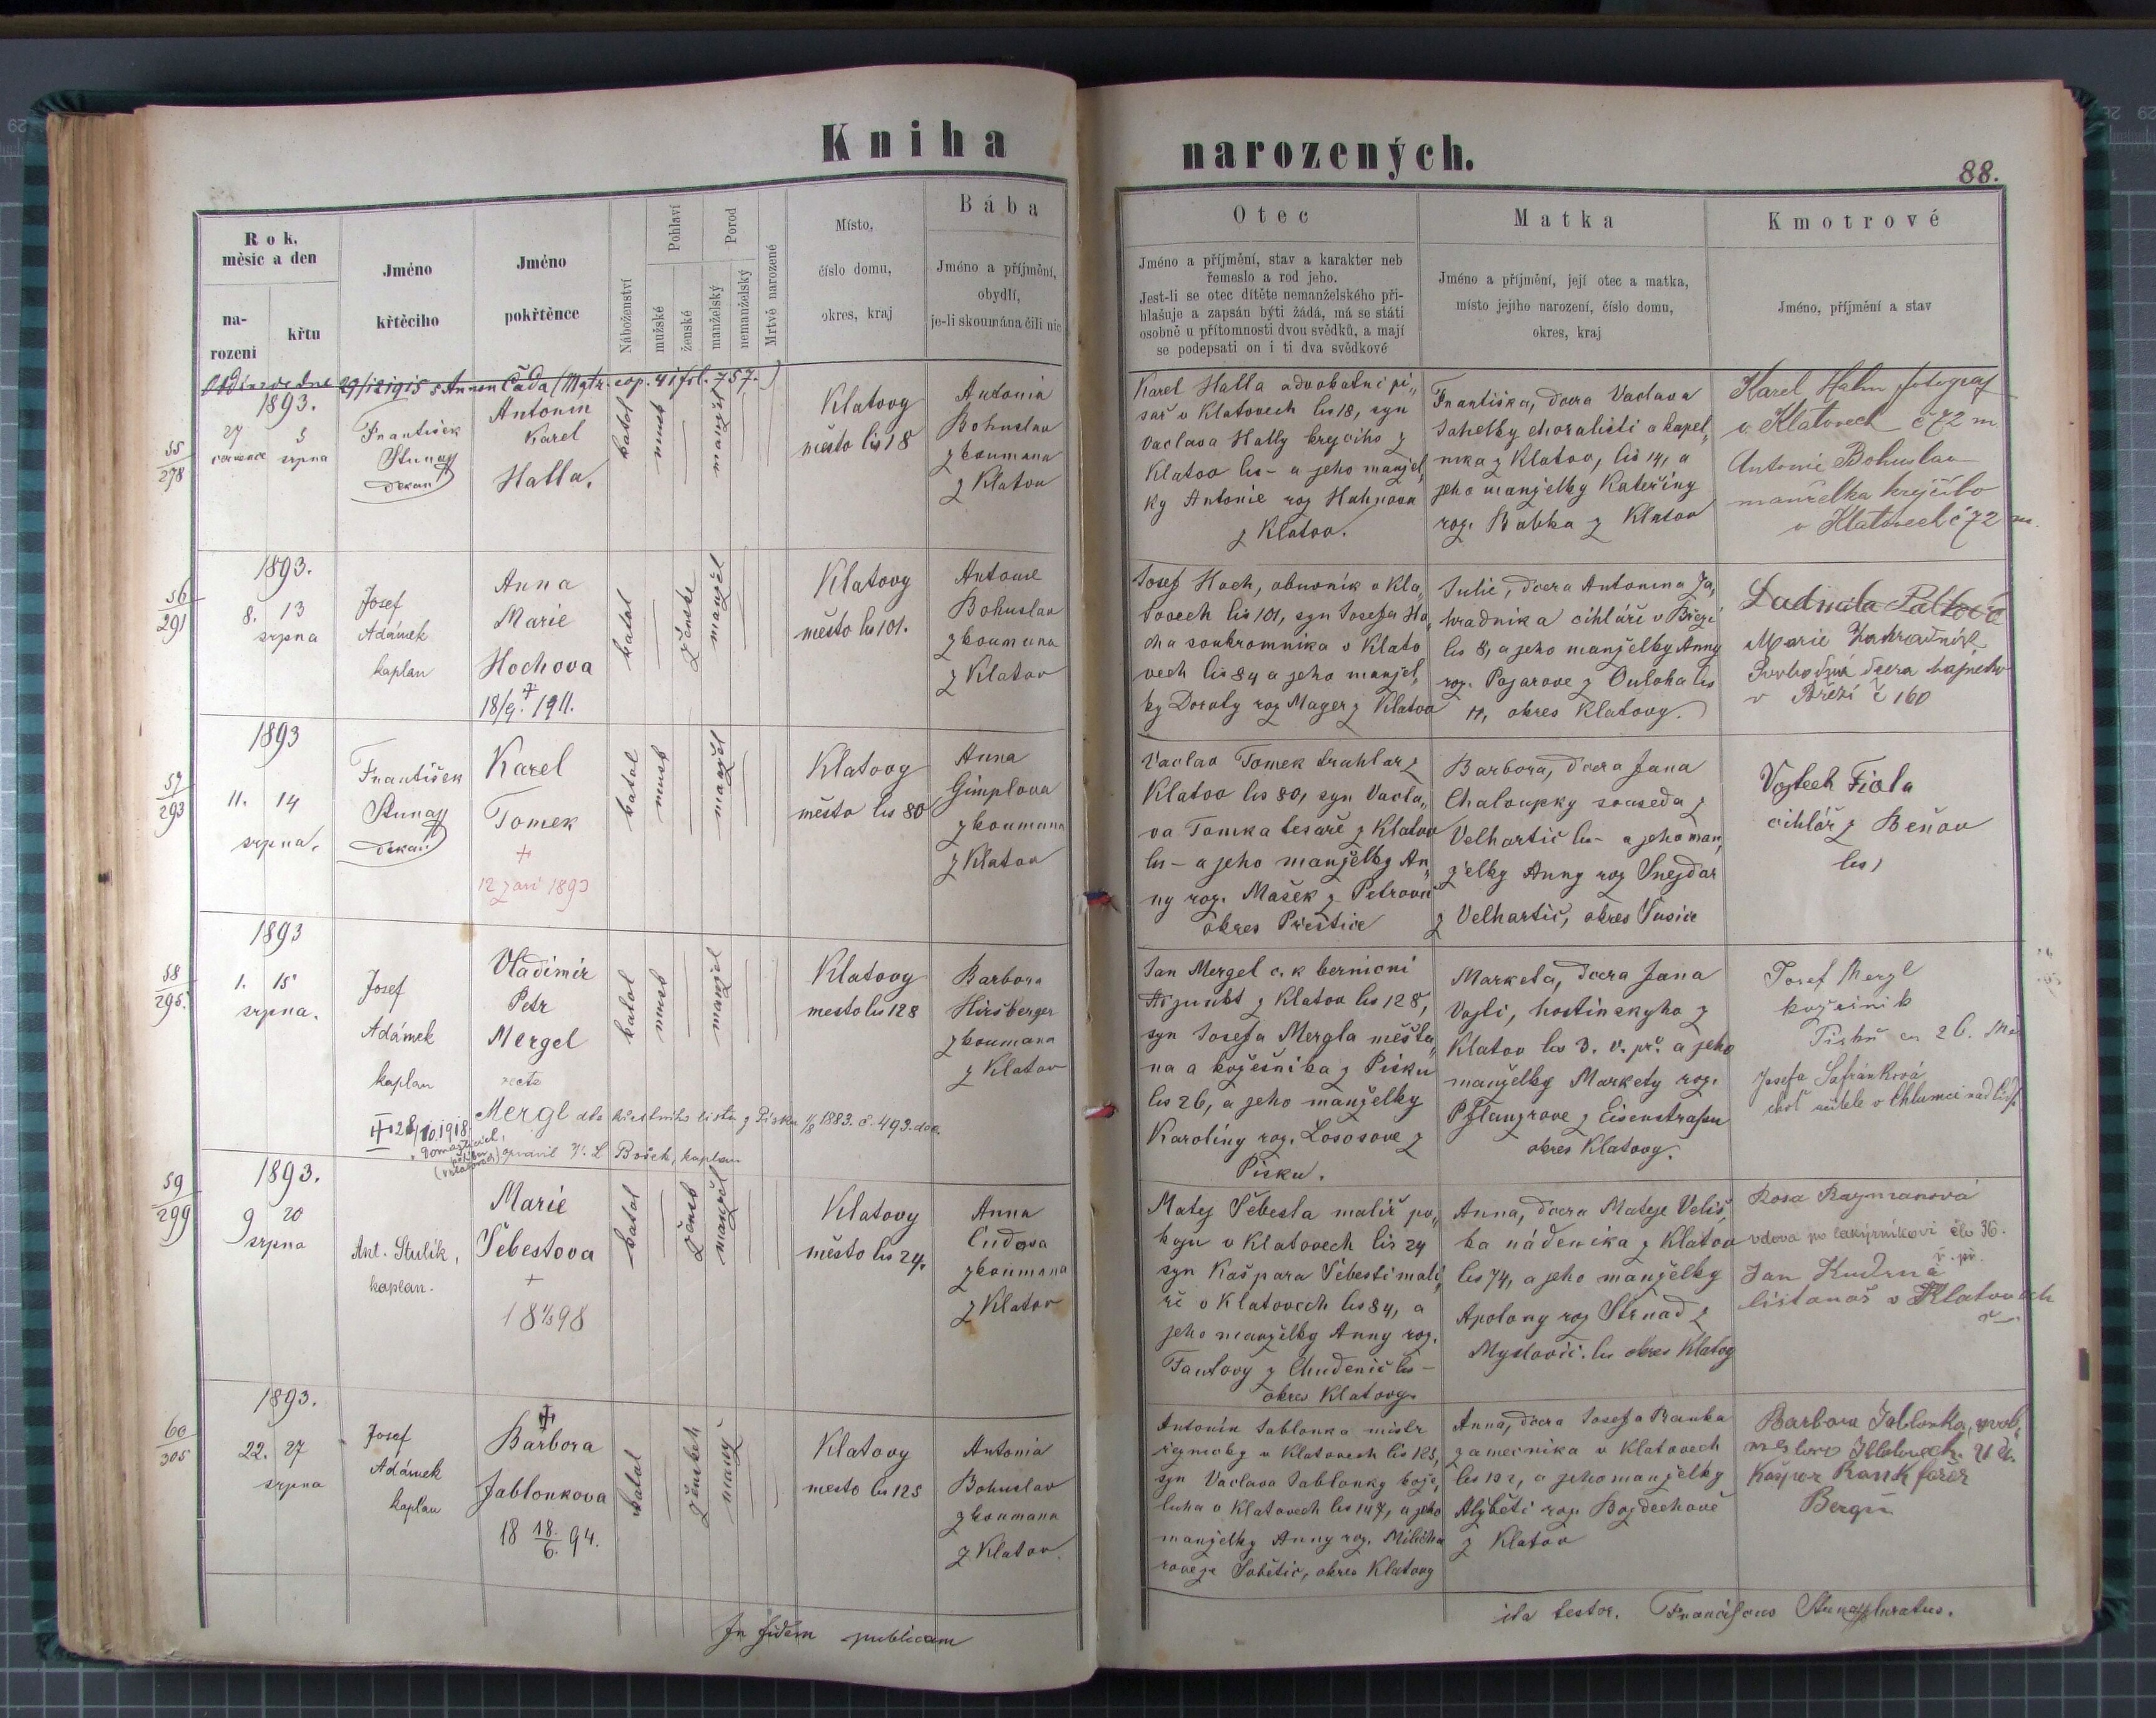 Kniha narozených.
88.
Rok, měsíc a den
narození
křtu
Jméno křtěcího
Jméno pokřtěnce
Náboženství
Pohlaví
mužské
ženské
Porod
manželský
nemanželský
Mrtvě narozené
Místo,
číslo domu,
okres, kraj
Bába
Jméno a příjmění,
obydlí,
je-li skoumána čili nic
Otec
Jméno a příjmění, stav a karakter neb
řemeslo a rod jeho.
Jest-li se otec dítěte nemanželského při-
hlašuje a zapsán býti žádá, má se státi
osobně u přítomnosti dvou svědků, a mají
se podepsati on i ti dva svědkové
Matka
Jméno a příjmění, její otec a matka,
místo jejího narození, číslo domu,
okres, kraj
Kmotrové
Jméno, příjmění a stav
dne 29/12 1915 s Annou Čáda (Matr. cop. 41 fol. 757.)
55
278
1893.
27 července
3 srpna
František
děkan
Antonín
Karel
Halla.
katol
muž
manžel
Klatovy
město čís 18
Antonia
Bohuslav
zkoumana
z Klatov
Karel Halla advokatní pi„
sař v Klatovech čís 18, syn
Vaclava Hally krejciho z
Klatov čís - a jeho manžel„
ky Antonie roz Hahnova
z Klatov.
Františka, dcera Vaclava
choralisti a kapel„
nika z Klatov, čís 14, a
jeho manželky Kateřiny
roz. Babka z Klatov
Karel Hahn fotograf
v Klatovech č 72 m
Antonie Bohuslav
manželka krejčího
v Klatovech č 72 m.
56
291
1893.
8. 13
srpna
Josef
Adámek
kaplan
Anna
Marie
Hochova
18/9. 1911.
katol
ženske
manžel
Klatovy
město čís 101.
Antonie
Bohuslav
zkoumana
z Klatov
Josef Hoch, obuvník v Kla„
tovech čís 101, syn Josefa Ho„
cha soukromníka v Klato
vech čís 84 a jeho manžel„
ky Doroty roz Mayer z Klatov
Julie, dcera Antonina Za„
hradnika cihláře v Březi
čís 8, a jeho manželky Anny
roz. Pojarove z Ouloha čís
11, okres Klatovy.
Marie Zahradník
Svobodná dcera
v Březí č 160
57
293
1893
11. 14
srpna.
František
děkan
Karel
Tomek
+
12 září 1893
katol
muž
manžel
Klatovy
město čís 80
Anna
Gimplova
zkoumana
z Klatov
Vaclav Tomek truhlar z
Klatov čís 80, syn Vacla„
va Tomka tesaře z Klatov
čís - a jeho manželky An„
ny roz. Mašek z Petrovic
okres Přeštice
Barbora, dcera Jana
Chaloupky souseda z
Velhartic čís - a jeho man„
želky Anny roz Šnejdar
z Velhartic, okres Sušice
Vojtech Fiala
cihlář z Beňov
čís 1
58
295.
1893
1. 15
srpna.
Josef
Adámek
kaplan
Vladimir
Petr
Mergel
recte
Mergl dle křestního listu z Písku 1/8 1883. č. 493. doc.
28/10.1918
opravil Bošek, kaplan
katol
muž
manžel
Klatovy
mesto čís 128
Barbora
Hirsberger
zkoumana
z Klatov
Jan Mergel c. k berniční
Adjunkt z Klatov čís 128,
syn Josefa Mergla měšťa„
na a kožešnika z Pisku
čís 26, a jeho manželky
Karoliny roz. Lososove z
Pisku.
Marketa, dcera Jana
Vojti, hostinskyho z
Klatov čís 3. v. př. a jeho
manželky Markety roz.
z Eisenstrassu
okres Klatovy.
Josef Mergl
kožešník
Josefa Šafránková
choť učitele v Chlumci nad Cidl.
59
299
1893.
9 20
srpna
Ant. Štulík,
kaplan.
Marie
Šebestova
+
katol
ženš
manžel
Klatovy
město čís 24.
Anna
Čudova
zkoumana
z Klatov
Matej Šebesta malíř po„
koju v Klatovech čís 24
syn Kašpara Šebesti mali„
ře v Klatovech čís 84, a
jeho manželky Anny roz.
Tautovy z Chudenic čís -
okres Klatovy.
Anna, dcera Mateje Veliš„
ka nádenika z Klatov
čís 74, a jeho manželky
Apolony roz Strnad z
Myslovic. čís okres Klatovy
Rosa Raymanová
vdova po lakýrníkovi čís 36.
ř. př.
Jan Kudrna
listonoš v Klatovech
60
305
1893.
22. 27
srpna
Josef
Adámek
kaplan
+
Barbora
Jablonkova
18 18/6. 94.
katol
ženskeh
manž
Klatovy
mesto čís 125
Antonia
Bohuslav
zkoumana
z Klatov.
Antonín Jablonka mistr
řeznický v Klatovech čís 125,
syn Vaclava Jablonky kože„
luha v Klatovech čís 147, a jeho
manželky Anny roz.
Sobětic, okres Klatovy
Anna, dcera Josefa Ranka
zamečnika v Klatovech
čís 122, a jeho manželky
Alžběti roz.
z Klatov
Barbora Jablonka,
Kašpar Rank
In fidem publicam
ita testor. Franciscus curatus.